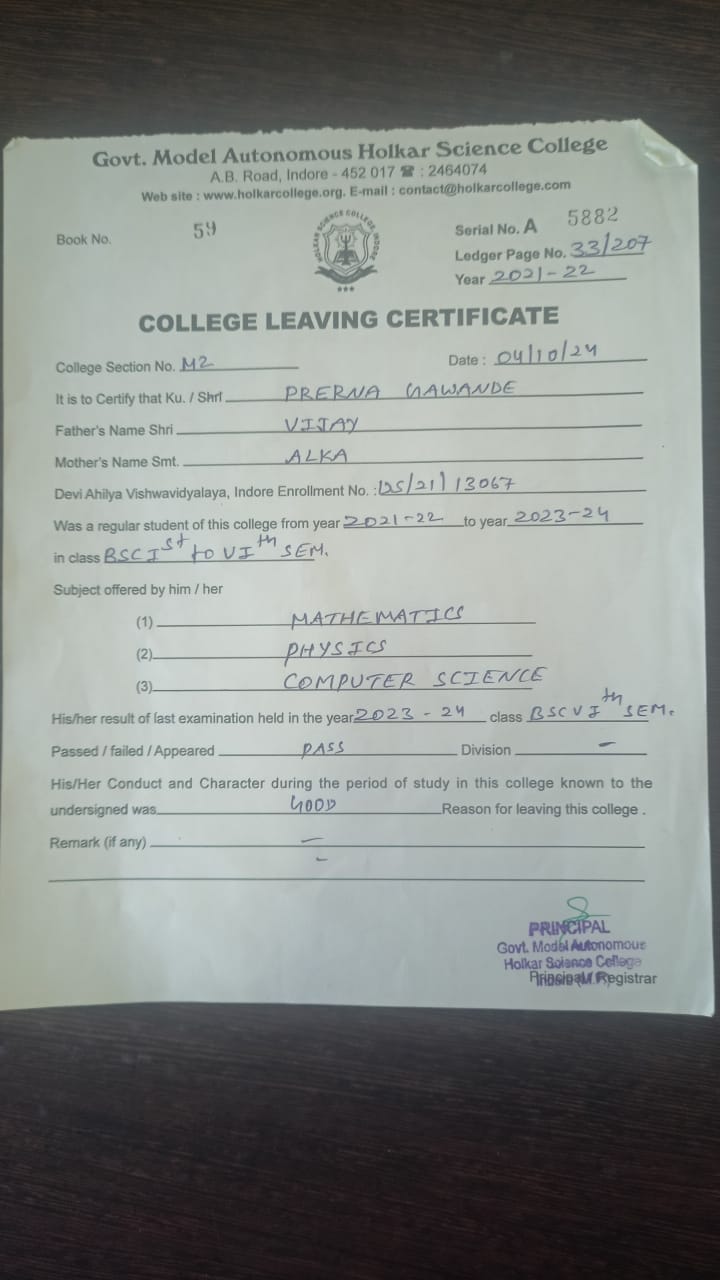 Govt. Model Autonomous Holkar Science College
A.B. Road, Indore - 452 017 ☎ : 2464074
Web site : www.holkarcollege.org. E-mail : contact@holkarcollege.com
Book No. 59
HOLKAR SCIENCE COLLEGE, INDORE
Serial No. A 5882
Ledger Page No. 33/207
Year 2021-22
COLLEGE LEAVING CERTIFICATE
College Section No. M2 Date : 04/10/24
It is to Certify that Ku. / Shri PRERNA GAWANDE
Father's Name Shri VIJAY
Mother's Name Smt. ALKA
Devi Ahilya Vishwavidyalaya, Indore Enrollment No. : DS/21/13067
Was a regular student of this college from year 2021-22 to year 2023-24
in class BSC Ist to VIth SEM.
Subject offered by him / her
(1) MATHEMATICS
(2) PHYSICS
(3) COMPUTER SCIENCE
His/her result of last examination held in the year 2023-24 class BSC VIth SEM.
Passed / failed / Appeared PASS Division –
His/Her Conduct and Character during the period of study in this college known to the
undersigned was GOOD Reason for leaving this college .
Remark (if any) –
PRINCIPAL
Govt. Model Autonomous
Holkar Science College
Principal/ Registrar